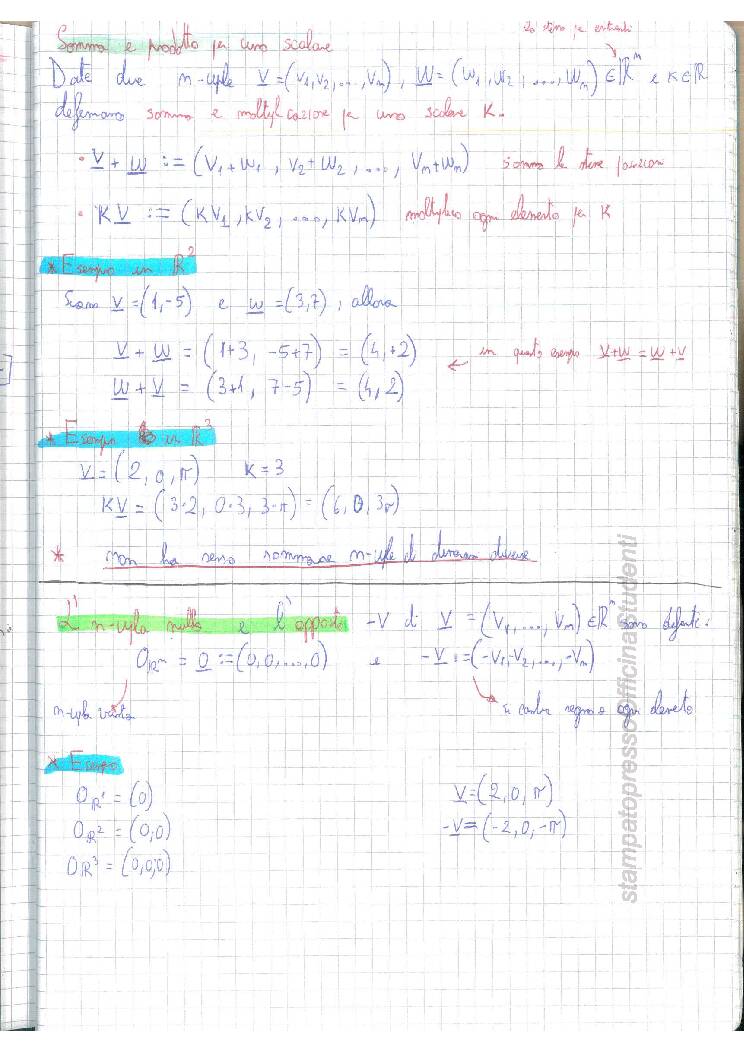 lo stesso per entrambi
Somma e prodotto per uno scalare
Date due n-uple v = (v₁, v₂, ..., vₙ), w = (w₁, w₂, ..., wₙ) ∈ ℝⁿ e k ∈ ℝ
definiamo somma e moltiplicazione per uno scalare K.
• v + w := (v₁+w₁, v₂+w₂, ..., vₙ+wₙ) somma le stesse posizioni
• K v := (Kv₁, Kv₂, ..., Kvₙ) moltiplico ogni elemento per K
* Esempio in ℝ²
Siano v = (1,-5) e w = (3,7), allora
v + w = (1+3, -5+7) = (4,+2)
in questo esempio v+w = w+v
w + v = (3+1, 7-5) = (4,2)
* Esempio in ℝ³
v = (2, 0, π) K = 3
Kv = (3·2, 0·3, 3·π) = (6, 0, 3π)
* non ha senso sommare n-uple di dimensioni diverse
L'n-upla nulla e l'opposto -v di v = (v₁, ..., vₙ) ∈ ℝⁿ sono definite:
0ℝⁿ = 0 := (0,0,...,0) e -v := (-v₁,-v₂,...,-vₙ)
n-upla vuota
si cambia segno a ogni elemento
* Esempio
0ℝ¹ = (0) v = (2, 0, π)
0ℝ² = (0,0) -v = (-2, 0, -π)
0ℝ³ = (0,0,0)
stampatopressoOfficinaStudenti